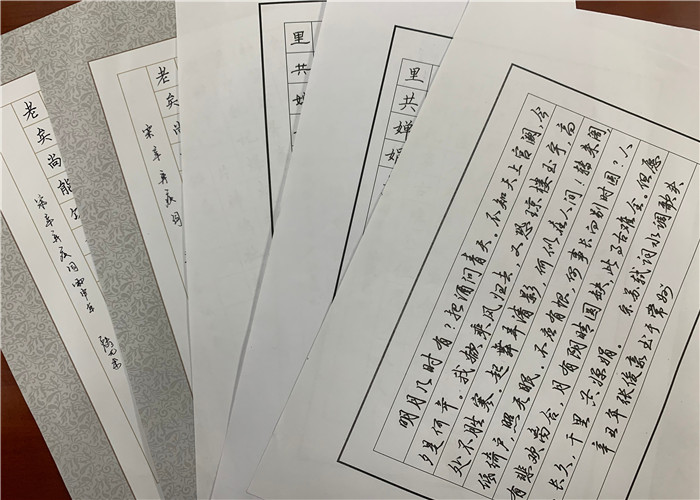 老矣尚能
宋辛弃疾词
老矣尚
宋辛弃疾词
里共
里共婵娟
明月几时有?把酒问青天。不知天上宫阙,今
夕是何年。我欲乘风归去,又恐琼楼玉宇,高
处不胜寒。起舞弄清影,何似在人间!转朱阁,
低绮户,照无眠。不应有恨,何事长向别时圆?人
有悲欢离合,月有阴晴圆缺,此事古难全。但愿
人长久,千里共婵娟。 宋苏轼词水调歌头
辛丑年张俊豪书于常